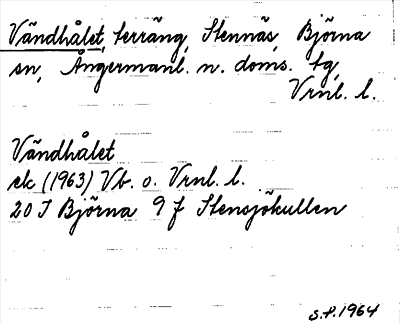 Vändhålet, terräng, Stennäs, Björna
sn, Ångermanl. n. doms. tg,
Vrnl. l.
Vändhålet
ek (1963) Vb. o. Vrnl. l.
20 J Björna 9 f Stensjökullen
s.f. 1964